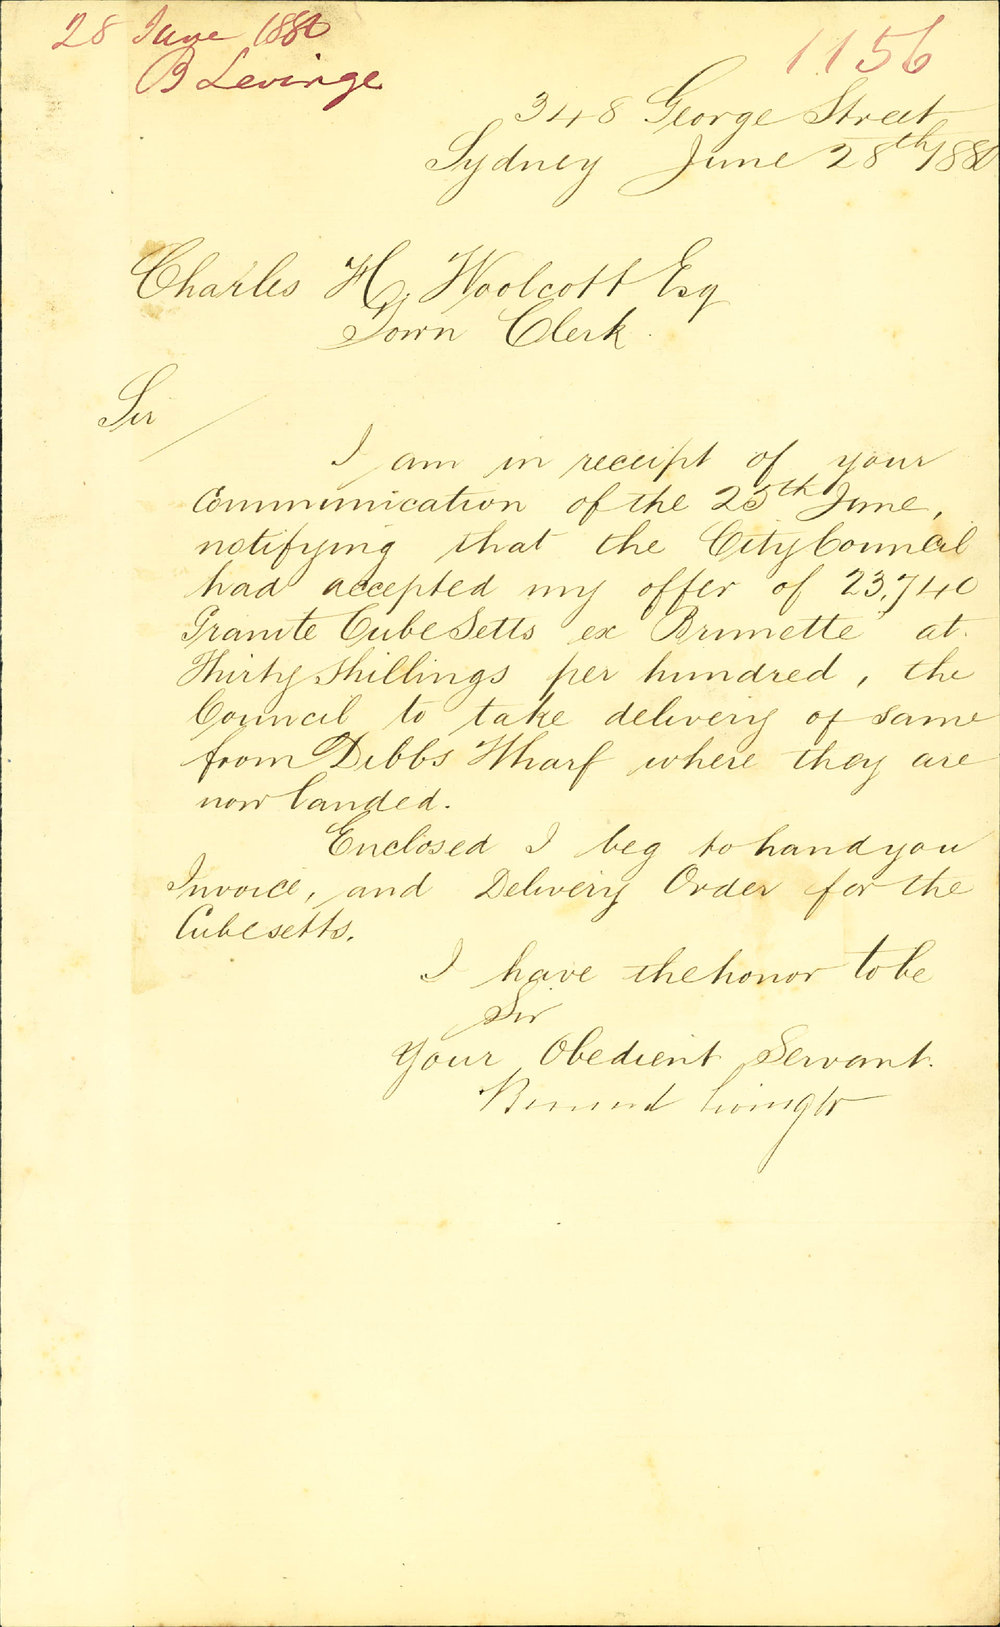 28 June 1880
B Levinge
1156
348 George Street
Sydney June 28th 1880
Charles H. Woolcott Esq
Town Clerk.
Sir
I am in receipt of your
Communication of the 25th June,
notifying that the City Council
had accepted my offer of 23,740
Granite Cube Setts ex "Brunette" at
Thirty Shillings per hundred, the
Council to take delivery of same
from Dibbs Wharf where they are
now landed.
Enclosed I beg to hand you
Invoice, and Delivery Order for the
Cube setts.
I have the honor to be
Sir
Your Obedient Servant.